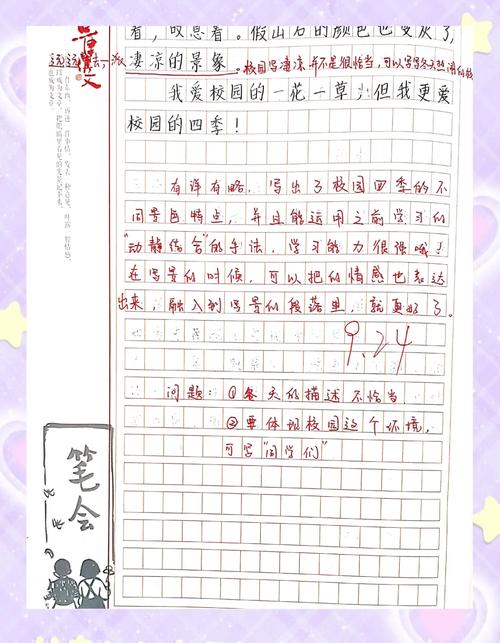 看，叹息着。假山石的颜色也变灰了，
远远望去一派凄凉的景象。校园写凄凉并不是很恰当，可以写写冬天热闹的校
我爱校园的一花一草，但我更爱
校园的四季！
有详有略，写出了校园四季的不
同景色特点，并且能运用之前学习的
“动静结合”的手法，学习能力很强哦！
在写景的时候，可以把的情感也表达
出来，融入到写景的段落里，就更好了。
9.24
问题：①冬天的描述不恰当
②要体现校园这个环境，
可写“同学们”
笔会